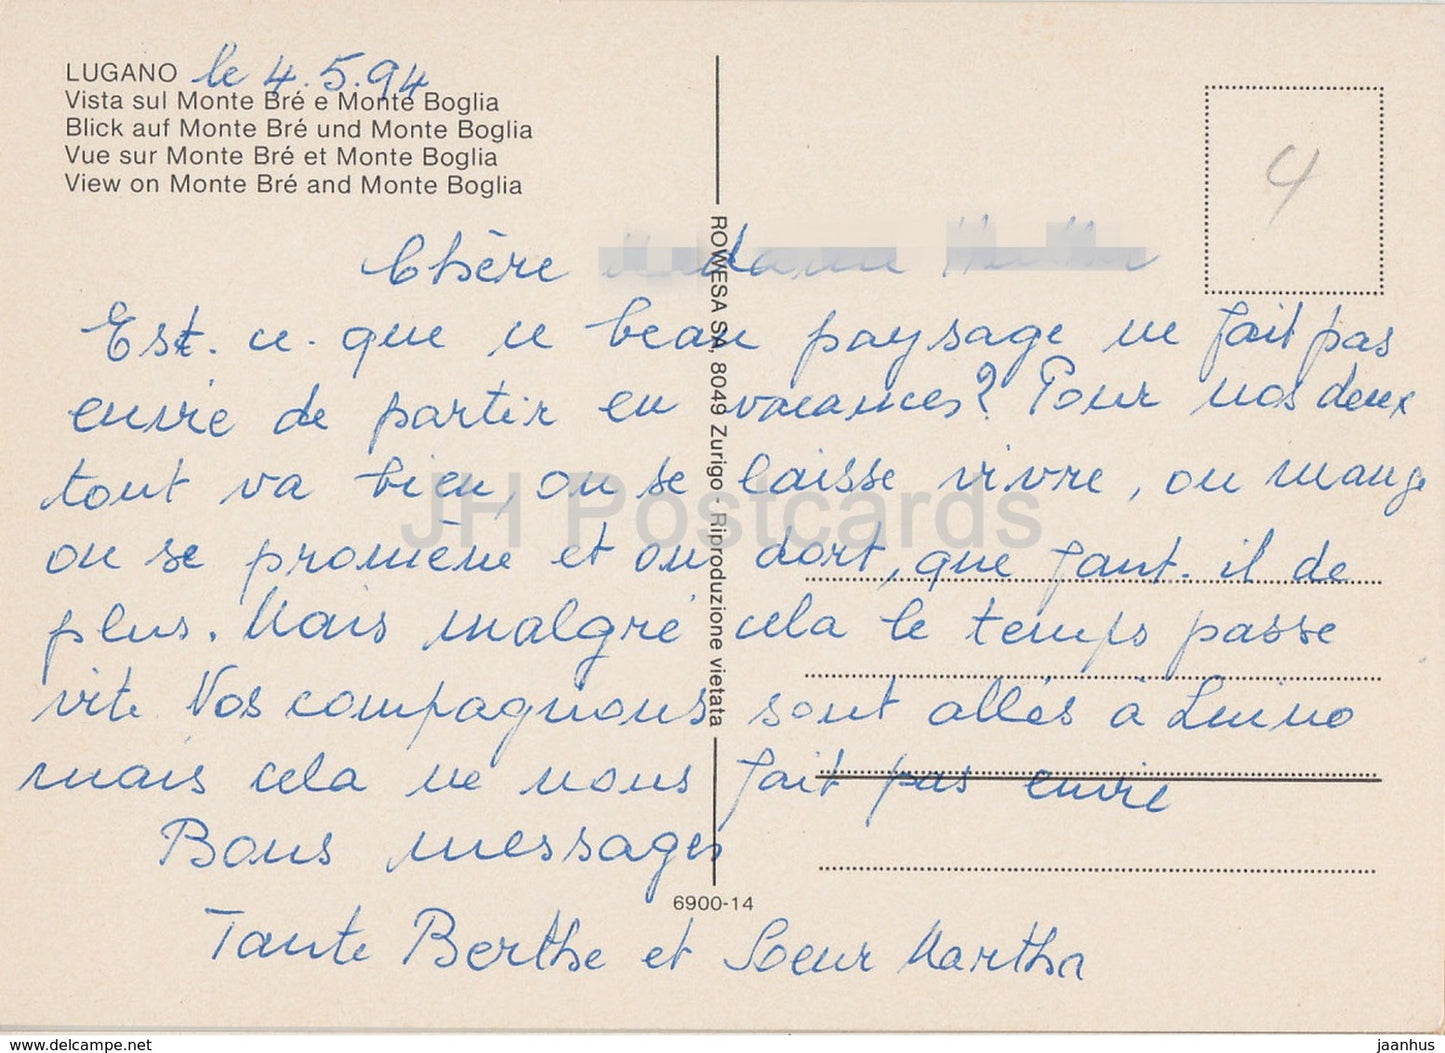 LUGANO le 4.5.94
Vista sul Monte Bré e Monte Boglia
Blick auf Monte Bré und Monte Boglia
Vue sur Monte Bré et Monte Boglia
View on Monte Bré and Monte Boglia
4
Chère
Est-ce-que ce beau paysage ne fait pas
envie de partir en vacances? Pour nos deux
tout va bien, on se laisse vivre, on mange
on se promène et on dort, que faut-il de
plus. Mais malgré cela le temps passe
vite Nos compagnons sont allés à Luino
mais cela ne nous fait pas envie
Bons messages
Tante Berthe et Soeur Martha
ROWESA SA, 8049 Zurigo - Riproduzione vietata
6900-14
JH Postcards
www.delcampe.net
jaanhus